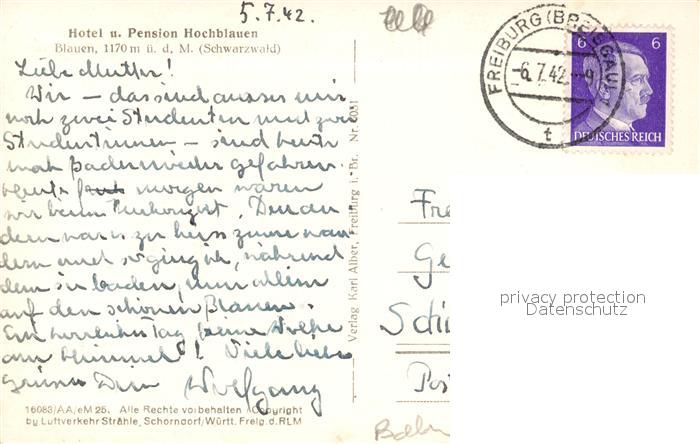 5.7.42.
Hotel u. Pension Hochblauen
Blauen, 1170 m ü. d. M. (Schwarzwald)
Liebe Mutter!
Wir – das sind ausser mir
noch zwei Studenten und zwei
Studentinnen – sind heute
nach Badenweiler gefahren.
heute morgen waren
wir beim Kurkonzert. Den an
dern war es zu heiss zum wan
dern und so ging ich, während
dem sie baden, nun allein
auf den schönen Blauen.
Ein herrlicher Tag keine Wolke
am Himmel! Viele liebe
Grüsse Dein Wolfgang
16083/AA/eM 25. Alle Rechte vorbehalten / Copyright
by Luftverkehr Strähle, Schorndorf/Württ. Freig. d. RLM
Verlag Karl Alber, Freiburg i. Br. Nr. 6051
FREIBURG (BREISGAU) 1
-6.7.42.--9
t
6 6
DEUTSCHES REICH
Fre
Ge
Schi
Pos
privacy protection
Datenschutz